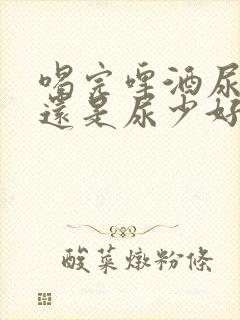 喝完啤酒尿
還是尿少好
酸菜燉粉條